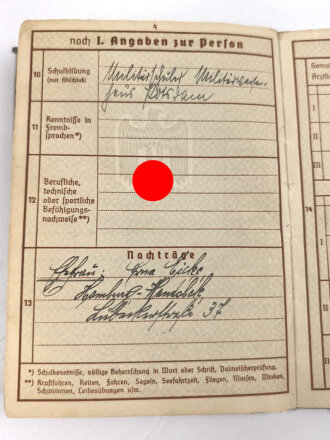 4
noch I. Angaben zur Person
10 Schulbildung (nur Abschluß)
Militärschüler Militärwaisen-
haus Potsdam
11 Kenntnisse in
Fremd-
sprachen*)
12 Berufliche,
technische
oder sportliche
Befähigungs-
nachweise**)
Nachträge
13
Ehefrau: Erna
Hamburg-Wandsbek
Lübeckerstraße 37
*) Schulkenntnisse, völlige Beherrschung in Wort oder Schrift, Dolmetscherprüfung.
**) Kraftfahren, Reiten, Fahren, Segeln, Seefahrtzeit, Fliegen, Morsen, Winken,
Schwimmen, Leibesübungen usw.